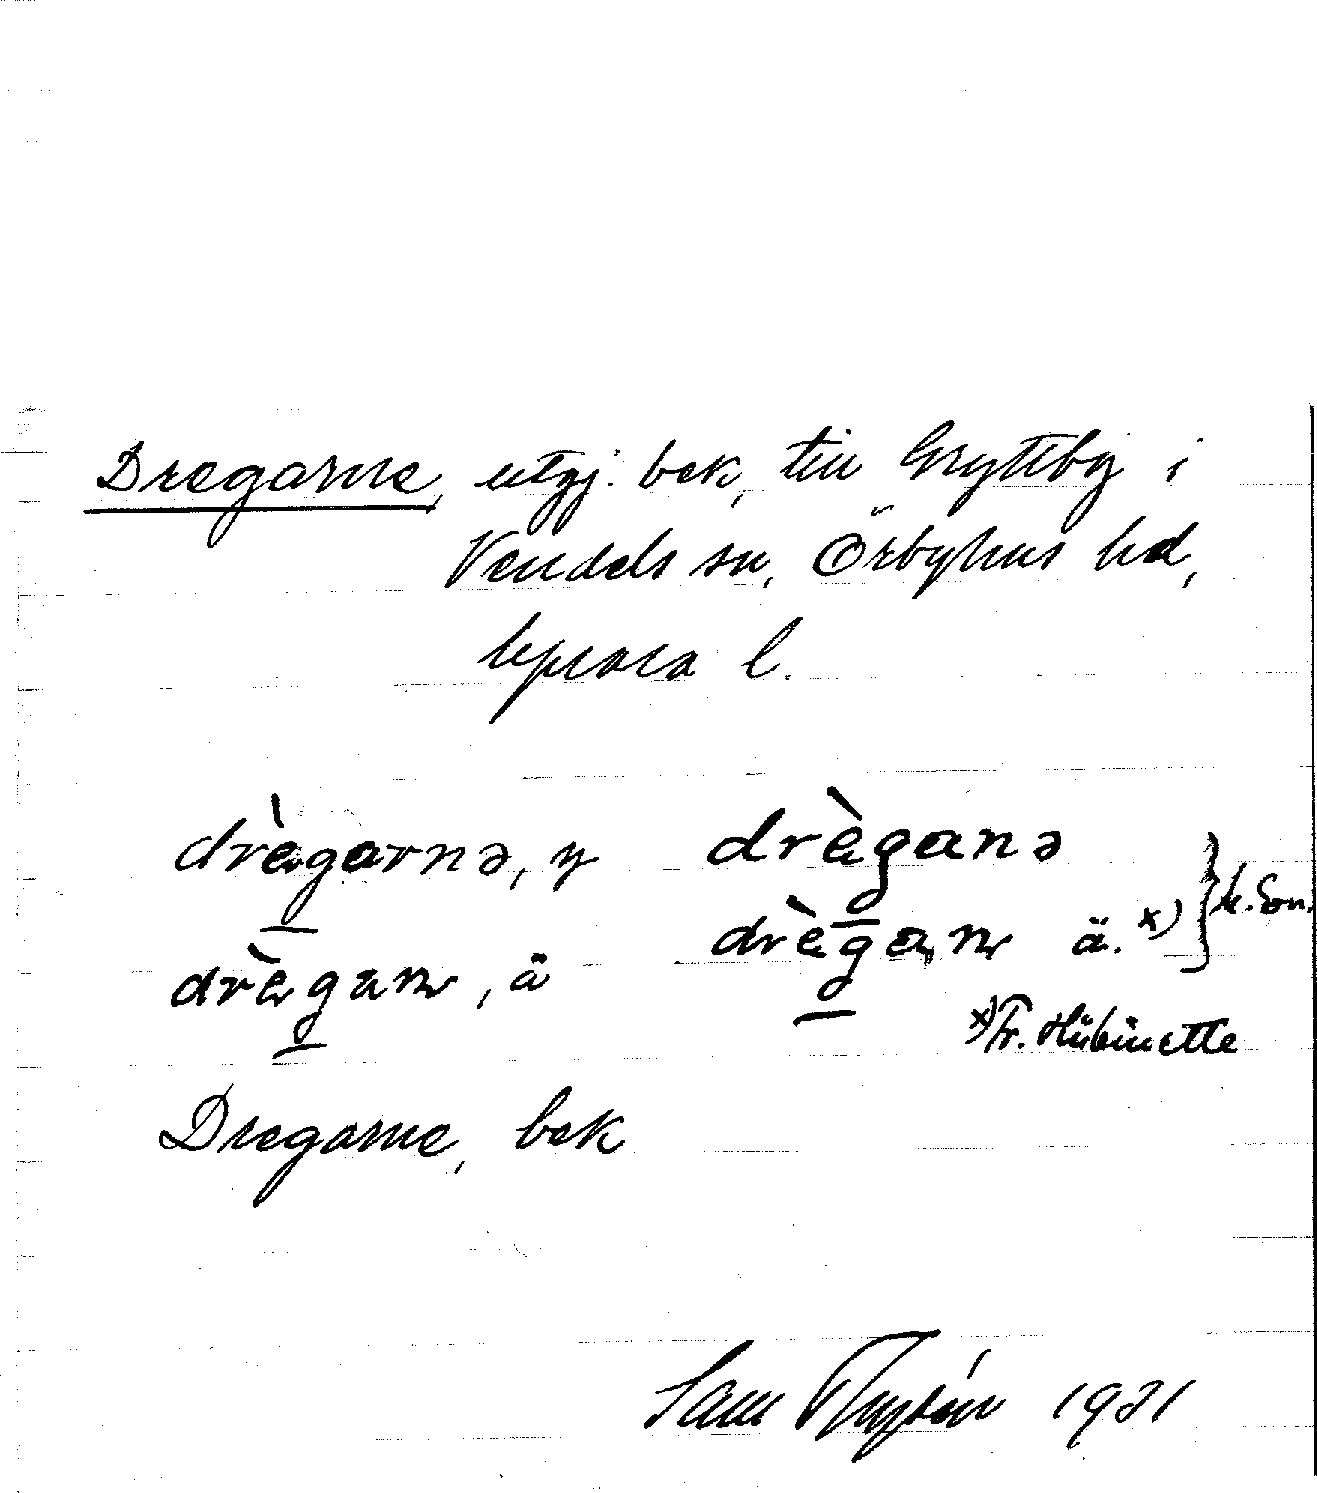 Dregarne, utgj. bek, till Gryttby i
Vendels sn, Örbyhus hd,
Uppsala l.
drègarnə, y drèganə
drègaṇ, ä drègaṇ ä. x) } k. Son.
x) Fr. Hübinette
Dregarne, bek
Sam 1921